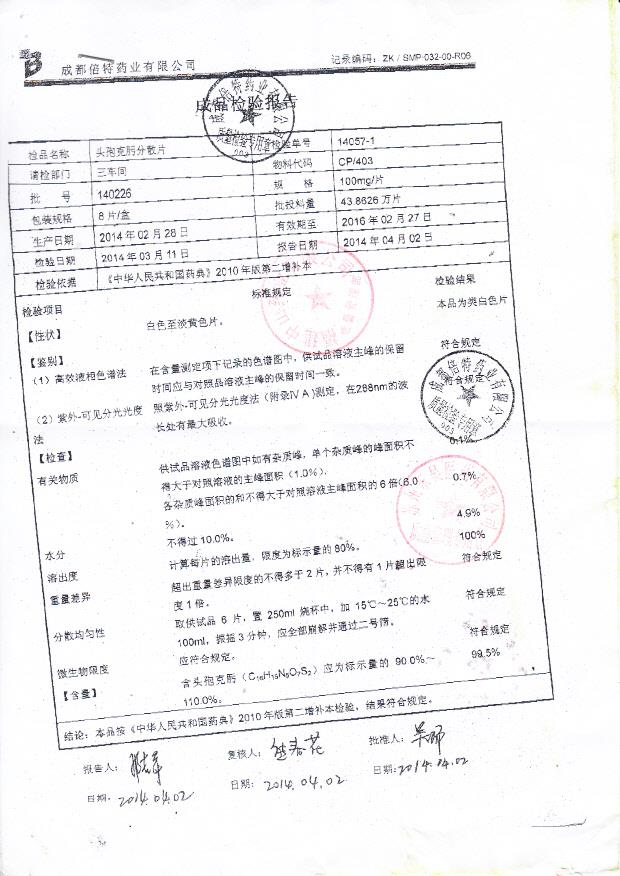 成都倍特药业有限公司
记录编码：ZK / SMP-032-00-R06
成品检验报告
检品名称 头孢克肟分散片 检验单号 14057-1
请检部门 三车间 物料代码 CP/403
批 号 140226 规 格 100mg/片
包装规格 8 片/盒 批投料量 43.8626 万片
生产日期 2014 年 02 月 28 日 有效期至 2016 年 02 月 27 日
检验日期 2014 年 03 月 11 日 报告日期 2014 年 04 月 02 日
检验依据 《中华人民共和国药典》2010 年版第二增补本
检验项目 标准规定 检验结果
【性状】 白色至淡黄色片。 本品为类白色片
【鉴别】
（1）高效液相色谱法 在含量测定项下记录的色谱图中，供试品溶液主峰的保留 符合规定
时间应与对照品溶液主峰的保留时间一致。
（2）紫外-可见分光光度 照紫外-可见分光光度法（附录Ⅳ A）测定，在288nm的波 符合规定
法 长处有最大吸收。
【检查】 0.1%
有关物质 供试品溶液色谱图中如有杂质峰，单个杂质峰的峰面积不
得大于对照溶液的主峰面积（1.0%）， 0.7%
各杂质峰面积的和不得大于对照溶液主峰面积的 6 倍（6.0
%）。 4.9%
水分 不得过 10.0%。 100%
溶出度 计算每片的溶出量，限度为标示量的 80%。
重量差异 超出重量差异限度的不得多于 2 片，并不得有 1 片超出限 符合规定
度 1 倍。
分散均匀性 取供试品 6 片，置 250ml 烧杯中，加 15℃～25℃的水 符合规定
100ml，振摇 3 分钟，应全部崩解并通过二号筛。
微生物限度 应符合规定。 符合规定
【含量】 含头孢克肟（C₁₆H₁₅N₅O₇S₂）应为标示量的 90.0%～ 99.5%
110.0%。
结论：本品按《中华人民共和国药典》2010 年版第二增补本检验，结果符合规定。
报告人： 复核人： 批准人：
日期：2014.04.02 日期：2014.04.02 日期：2014.04.02